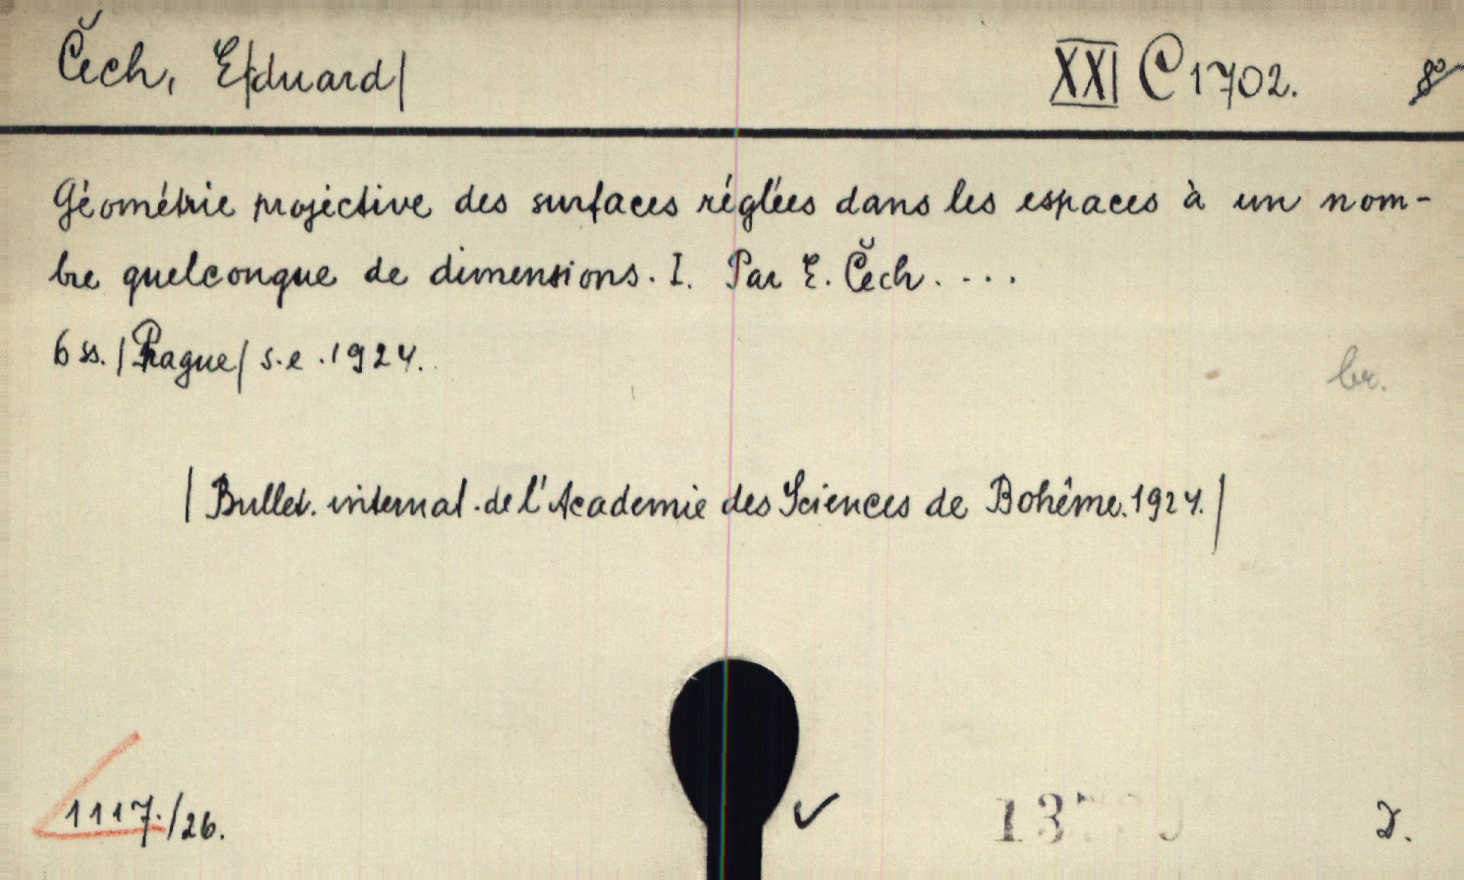 Čech, E/duard/ XXI C 1702. 8°
Géométrie projective des surfaces réglées dans les espaces à un nom-
bre quelconque de dimensions. I. Par E. Čech. ...
6 ss. /Prague/ s.e. 1924.
br.
/Bullet. internat. de l'Academie des Sciences de Bohême. 1924./
1117./26.